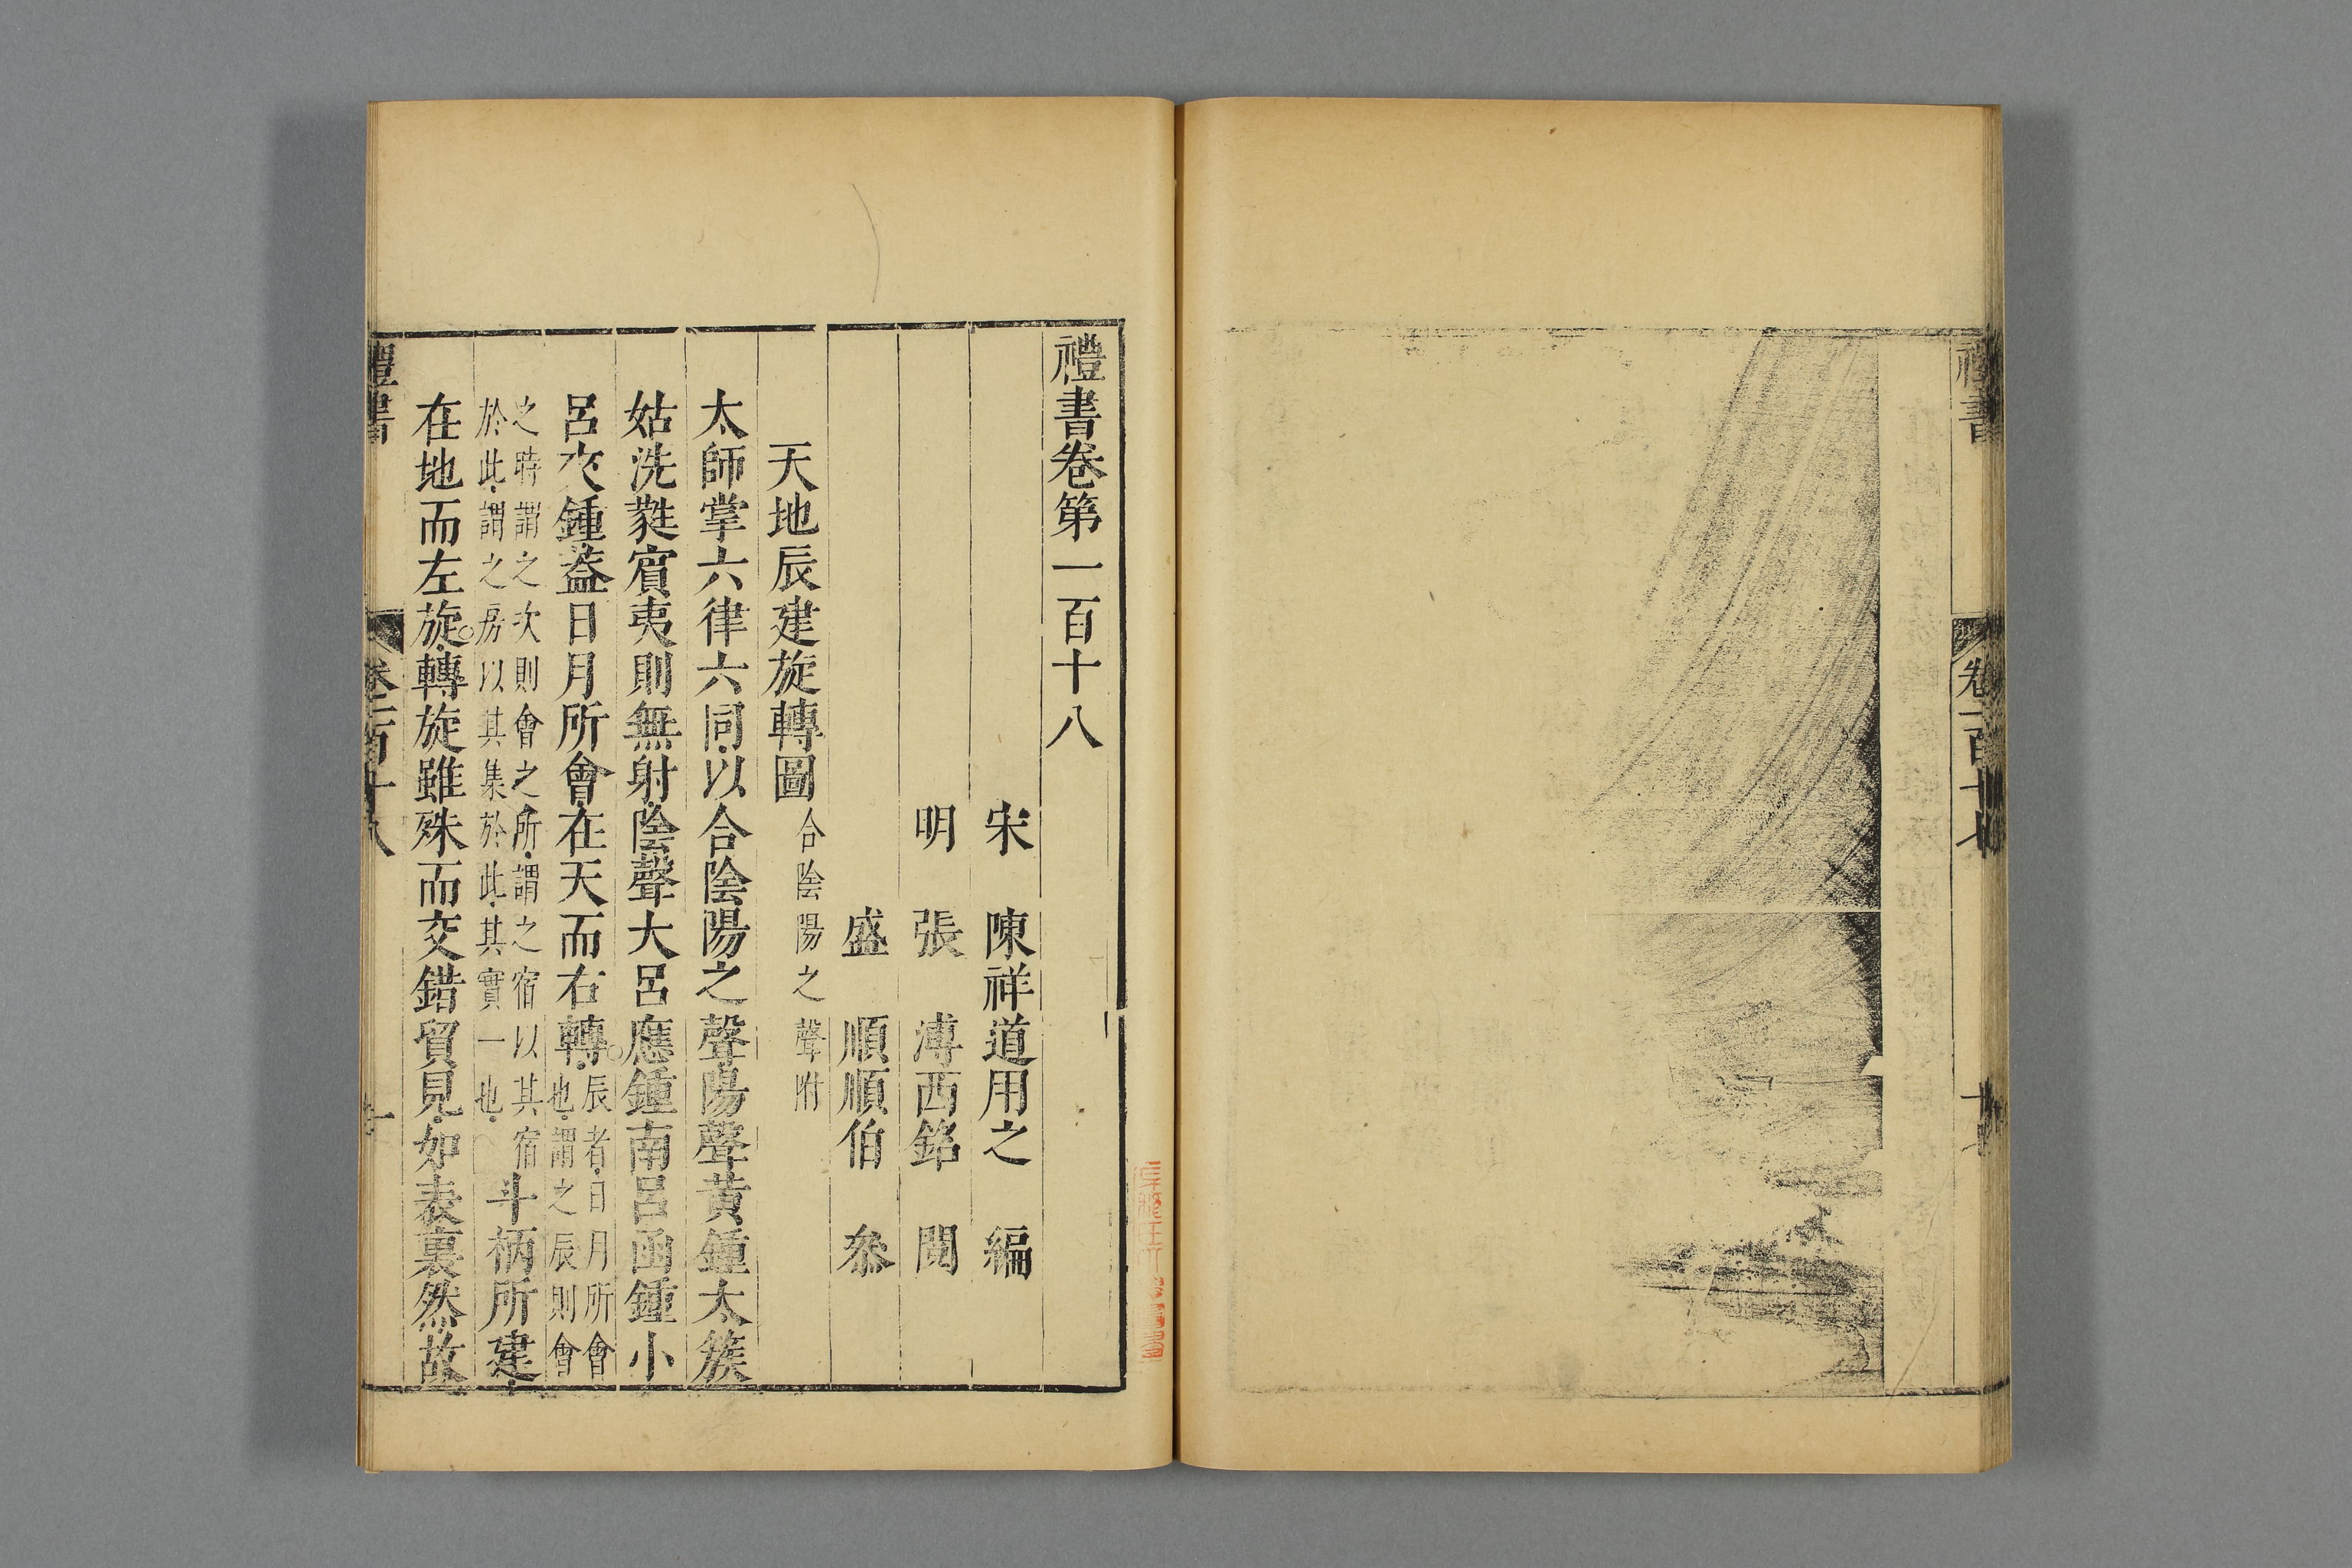 禮書
卷一百十七
禮書卷第一百十八
宋 陳祥道用之 編
明 張 溥西銘 閱
盛 順順伯 叅
天地辰建旋轉圖合陰陽之聲附
太師掌六律六同以合陰陽之聲陽聲黃鍾太簇
姑洗蕤賓夷則無射陰聲大呂應鍾南呂函鍾小
呂夾鍾葢日月所會在天而右轉辰者日月所會
也謂之辰則會
之時謂之次則會之所謂之宿以其宿
於此謂之房以其集於此其實一也
斗柄所建
在地而左旋轉旋雖殊而交錯貿見如表裏然故
禮書
卷一百十八
一